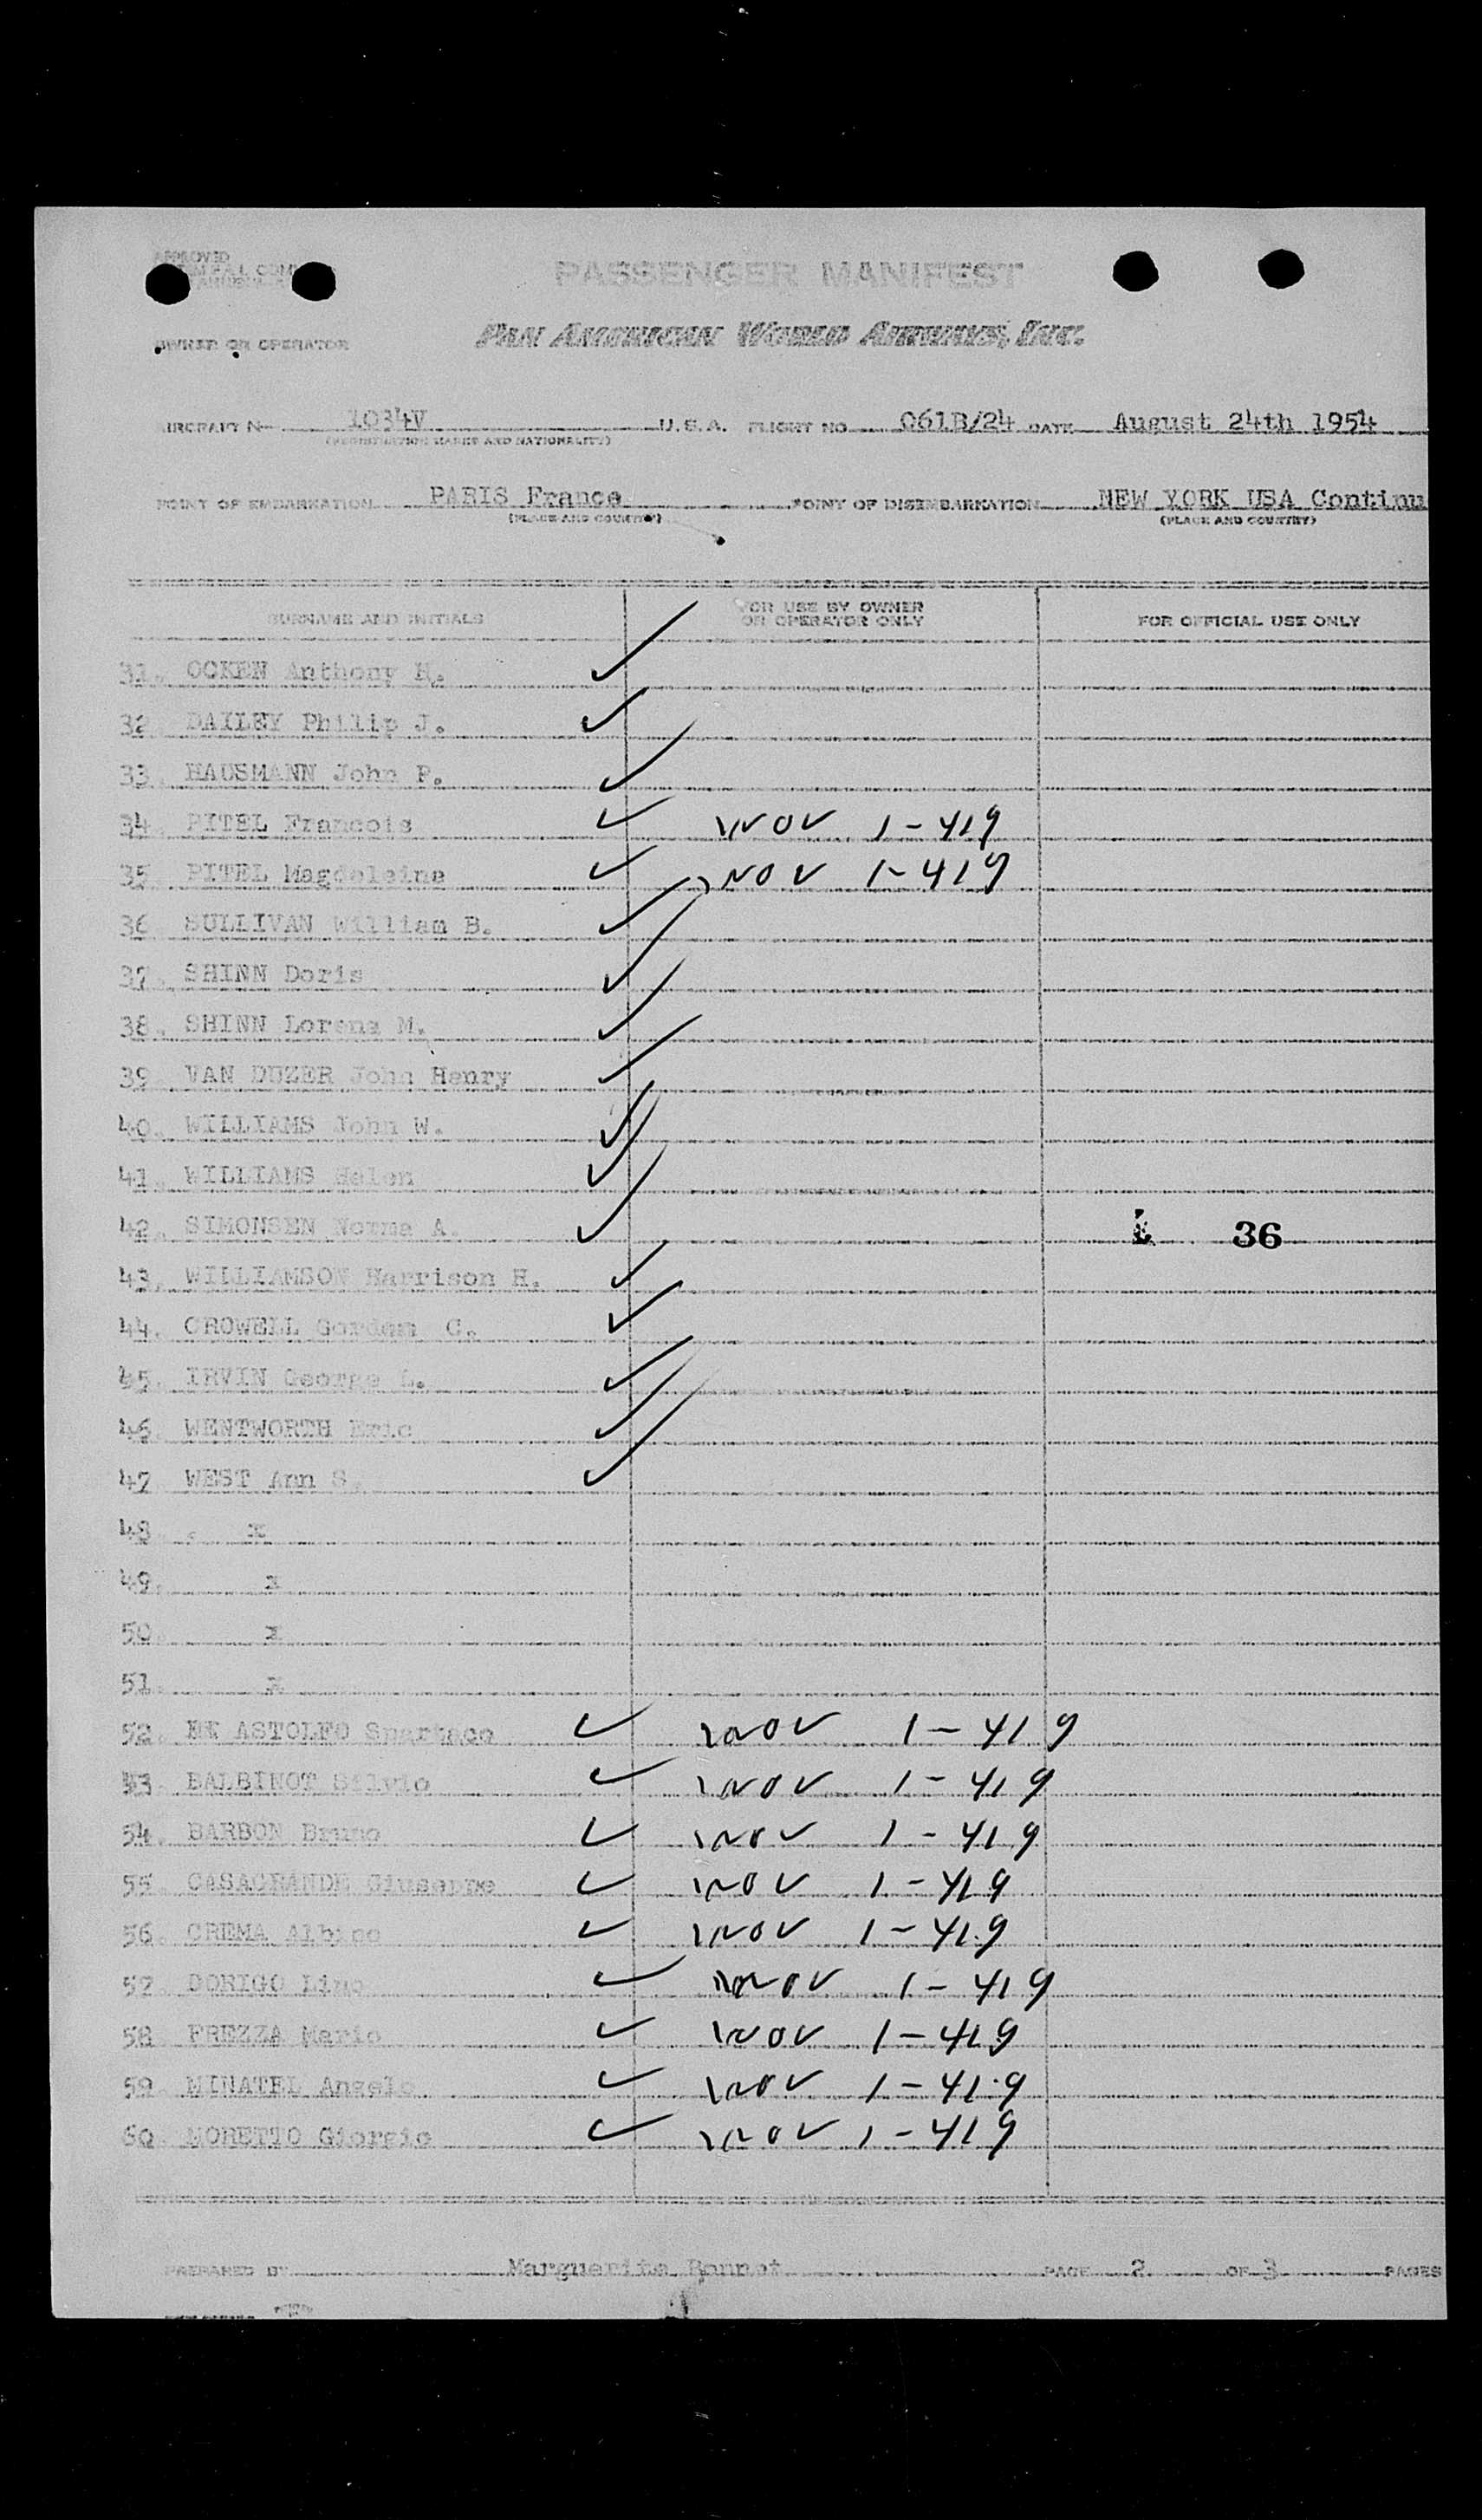 APPROVED
PASSENGER MANIFEST
PAN AMERICAN WORLD AIRWAYS, INC.
OWNER OR OPERATOR
AIRCRAFT N- 1034V U.S.A. FLIGHT NO 061B/24 DATE August 24th 1954
(REGISTRATION MARKS AND NATIONALITY)
POINT OF EMBARKATION PARIS France POINT OF DISEMBARKATION NEW YORK USA Continu
(PLACE AND COUNTRY) (PLACE AND COUNTRY)
SURNAME AND INITIALS FOR USE BY OWNER OR OPERATOR ONLY FOR OFFICIAL USE ONLY
31. OCKEN Anthony H. ✓
32 DAILEY Philip J. ✓
33. HAUSMANN John P. ✓
34. PITEL Francois ✓ 1NOV 1-419
35. PITEL Magdeleine ✓ 1NOV 1-419
36 SULLIVAN William B. ✓
37. SHINN Doris ✓
38. SHINN Lorena M. ✓
39 VAN DUZER John Henry ✓
40. WILLIAMS John W. ✓
41. WILLIAMS Helen ✓
42. SIMONSEN Norma A. ✓ 36
43. WILLIAMSON Harrison H. ✓
44. CROWELL Gordon C. ✓
45. IRVIN George L. ✓
46 WENTWORTH Eric ✓
47 WEST Ann S. ✓
48. x
49. x
50. x
51. x
52. ASTOLFO Spartaco ✓ 1NOV 1-419
53. BALBINOT Silvio ✓ 1NOV 1-419
54. BARBON Bruno ✓ 1NOV 1-419
55 CASAGRANDE Giuseppe ✓ 1NOV 1-419
56. CREMA Albino ✓ 1NOV 1-419
57 DORIGO Lino ✓ 1NOV 1-419
58 FREZZA Mario ✓ 1NOV 1-419
59 MINATEL Angelo ✓ 1NOV 1-419
60. MORETTO Giorgio ✓ 1NOV 1-419
PREPARED BY Marguerite Bonnet PAGE 2 OF 3 PAGES